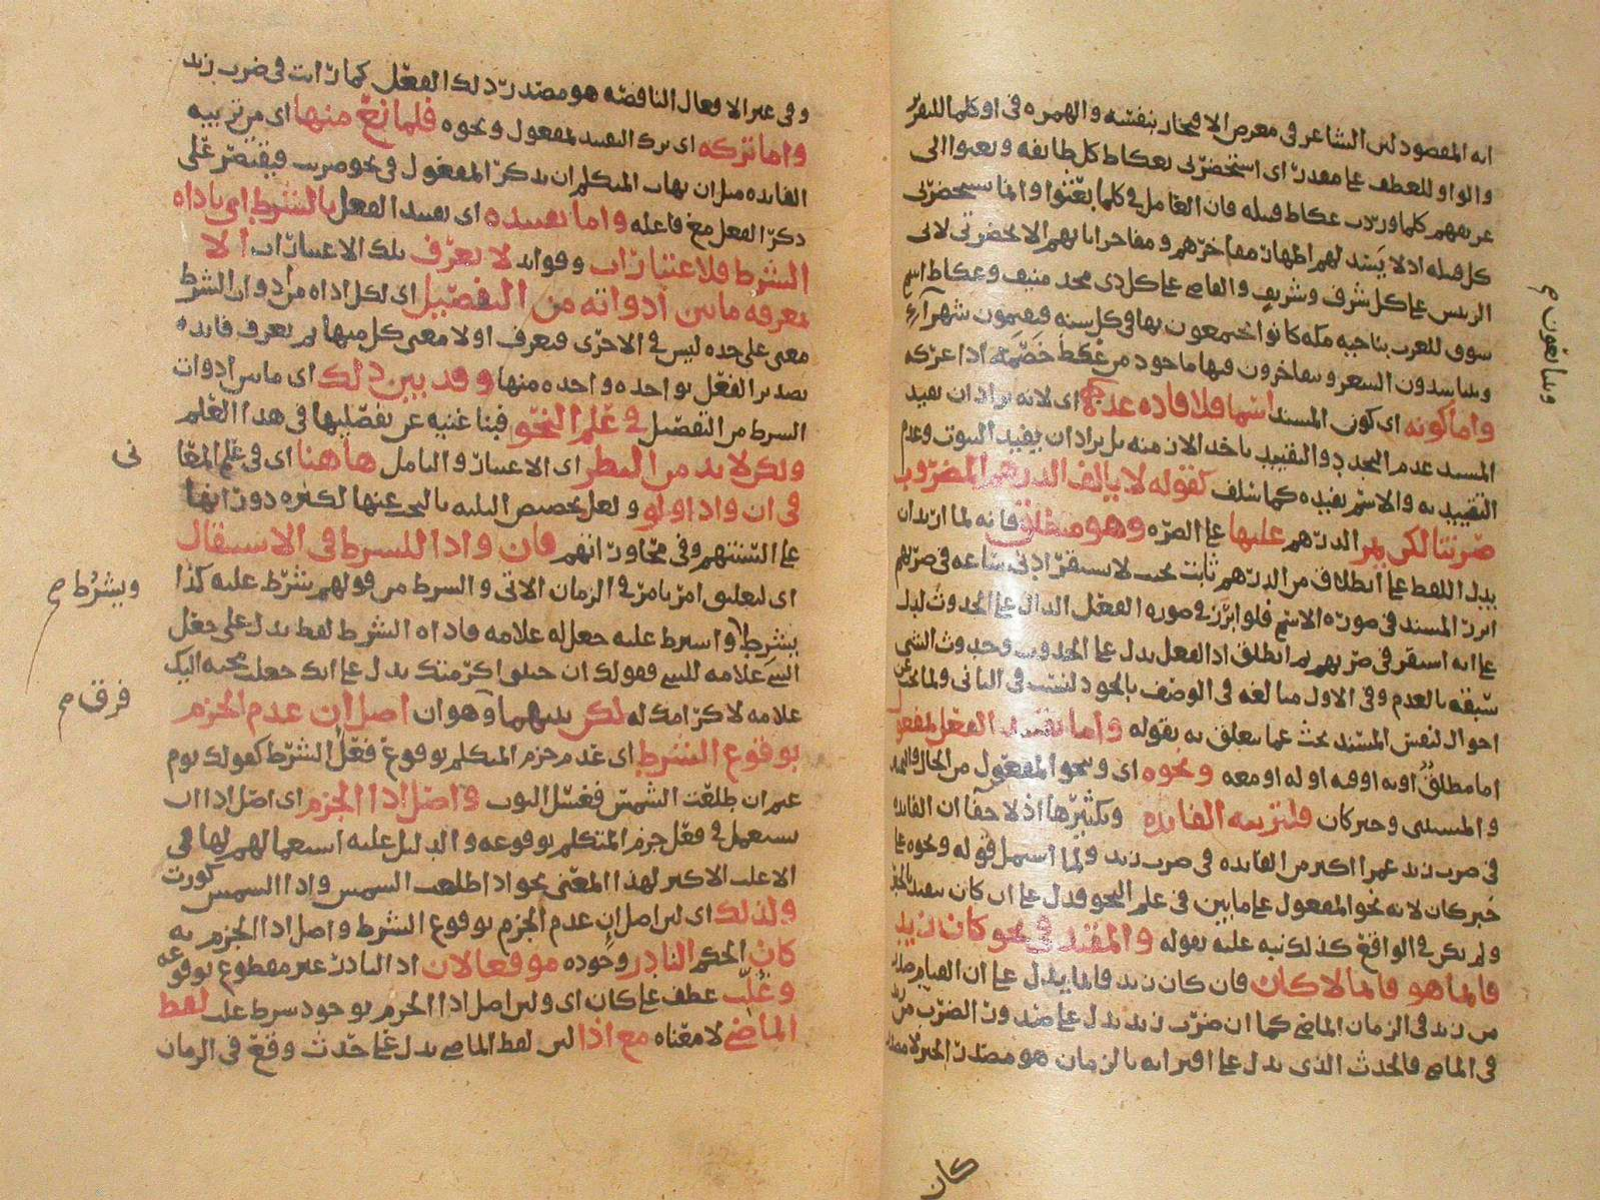 انه المقصود لان الشاعر في معرض الافتخار بنفسه والهمزه في او كلما للتقرير
والواو للعطف على مقدر اى استحضرنى بعكاط كل طايفه وبعثوا الى
عريفهم كلما وردت عكاط قبيله فان العامل في كلما بعثوا وانما ستحضرنى
كل قبيله اذ لا يتسد لهم اظهار مفاخرهم ومفاخر ابايهم الا بحضرتى لانى
الرييس على كل شرف وشريف والقاصى على كل ذى مجد منيف وعكاط اسم
سوق للعرب بناحيه مكه كانوا يجتمعون بها في كل سنه فيقيمون شهرا
ويتناسدون السعر ويتفاخرون فيها ماخود من عكط خصمه اذا عركه
واما كونه اى كون المسند اسما فلافاده عدمهما اى لانه يراد ان يفيد
المسند عدم التجدد والتقييد باحد الازمنه بل يراد ان يفيد الثبوت وعدم
التقييد به والاسم يفيده كما سلف كقوله لا يالف الدرهم المضروب
صرتنا لكن يمر الدرهم عليها على الصره وهو منطلق فانه لما اريد ان
يدل اللفط على انطلاق من الدرهم ثابت بحيث لا يستقر ادنى ساعه في صرتهم
ابرز المسند في صوره الاسم فلو ابرز في صوره الفعل الدال على الحدوث لدل
على انه استقر في صرتهم ثم انطلق اذ الفعل يدل على الحدوث وحدوث الشى
سبقه بالعدم وفي الاول مبالغه في الوصف بالجود ليست في الثانى ولما بحث عن
احوال لنفس المسند بحث عما يتعلق به بقوله واما تقييد الفعل بمفعول
اما مطلق او به او فيه او له او معه ونحوه اى ونحو المفعول من الحال والتمييز
والمستثنى وخبر كان فلتربيه الفايده وتكثيرها اذ لا خفا ان الفايده
في ضرب زيد عمرا اكثر من الفايده في ضرب زيد ولما اشتمل قوله ونحوه على
خبر كان لانه نحو المفعول على ما بين في علم النحو فدل على ان كان مقيد بالخبر
ولم يكن في الواقع كذلك نبه عليه بقوله والمقيد في نحو كان زيد
قايما هو قايما لا كان فان كان زيد قايما يدل على ان القيام صادر
من زيد في الزمان الماضى كما ان ضرب زيد يدل على صدور الضرب من زيد
في الماضى فالحدث الذى يدل على اقترانه بالزمان هو مصدر الخبر لا مصدر
ويتبايعون م
كان
وفي غير الافعال الناقصه هو مصدر ذلك الفعل كما رايت في ضرب زيد
واما تركه اى ترك التقييد بمفعول ونحوه فلمانع منها اى من تربيه
الفايده مثل ان يهاب المتكلم ان يذكر المفعول في نحو ضربت فيقتصر على
ذكر الفعل مع فاعله واما تقييده اى تقييد الفعل بالشرط اى باداه
الشرط فلاعتبارات وفوايد لا تعرف تلك الاعتبارات الا
بمعرفه ما بين ادواته من التفصيل اى لكل اداه من ادوات الشرط
معنى على حده ليس في الاخرى فيعرف اولا معنى كل منها ثم يعرف فايده
تصدير الفعل بواحده واحده منها وقد بين ذلك اى ما بين ادوات
الشرط من التفصيل في علم النحو فبنا غنيه عن تفصيلها في هذا العلم
ولكن لابد من النظر اى الاعتبار والتامل هاهنا اى في علم المعا
نى
في ان واذا ولو ولعل تخصيص الثلثه بالبحث عنها لكثره دورانها
على السنتهم وفي محاوراتهم فان واذا للشرط في الاستقبال
اى لتعليق امر بامر في الزمان الاتى والشرط من قولهم شرط عليه كذا
يشرط واشترط عليه جعل له علامه فاداه الشرط لفط يدل على جعل
ويشرُط م
الشى علامه للشى فقولك ان جيتنى اكرمتك يدل على انك جعلت مجيه اليك
علامه لاكرامك له لكن بينهما وهو ان اصل ان عدم الجزم
فرق م
بوقوع الشرط اى عدم جزم المتكلم بوقوع فعل الشرط كقولك يوم
غيم ان طلعت الشمس فغسل الثوب واصل اذا الجزم اى اصل اذا ان
يستعمل في فعل جزم المتكلم بوقوعه والدليل عليه استعمالهم لها في
الاغلب الاكثر لهذا المعنى نحو اذا طلعت الشمس واذا الشمس كورت
ولذلك اى لان اصل ان عدم الجزم بوقوع الشرط واصل اذا الجزم به
كان الحكم النادر وجوده موقعا لان اذ النادر غير مقطوع بوقوعه
وغُلّب عطف على كان اى ولان اصل اذا الجزم بوجود شرط غلب لفط
الماضى لا معناه مع اذا لان لفط الماضى يدل على حدث وقع في الزمان